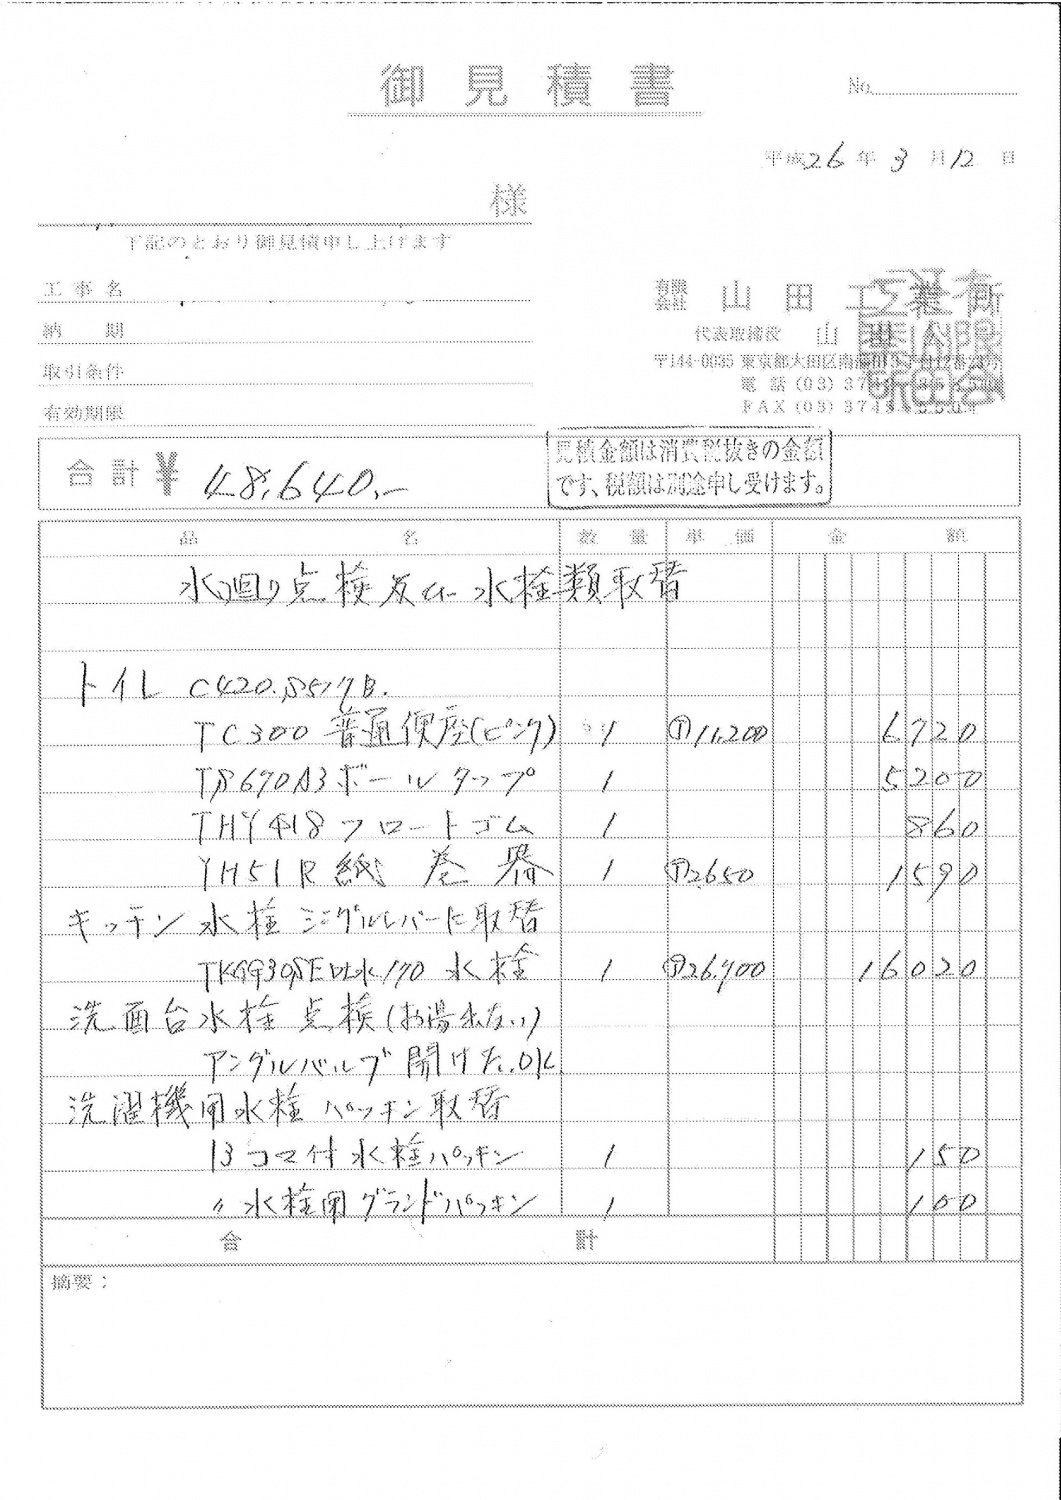 御見積書
No.
平成26年3月12日
様
下記のとおり御見積申し上げます
工事名
納期
取引条件
有効期限
有限会社 山田工業所
代表取締役 山
〒144-0035 東京都大田区南蒲田
電話(03)374
FAX(03)374
合計¥48,640.-
見積金額は消費税抜きの金額
です、税額は別途申し受けます。
品名 数量 単価 金額
水廻り点検及び水栓類取替
トイレ C420.S517B.
TC300 普通便座(ピンク) 1 Ⓣ11,200 6720
TS670A3ボールタップ 1 5200
THY418フロートゴム 1 860
YH51R 紙巻器 1 Ⓣ2,650 1590
キッチン水栓 シングルレバーに取替
水栓 1 Ⓣ26,700 16020
洗面台水栓点検(お湯出ない)
アングルバルブ開けた.OK
洗濯機用水栓パッキン取替
13コマ付水栓パッキン 1 150
〃水栓用グランドパッキン 1 100
合計
摘要: